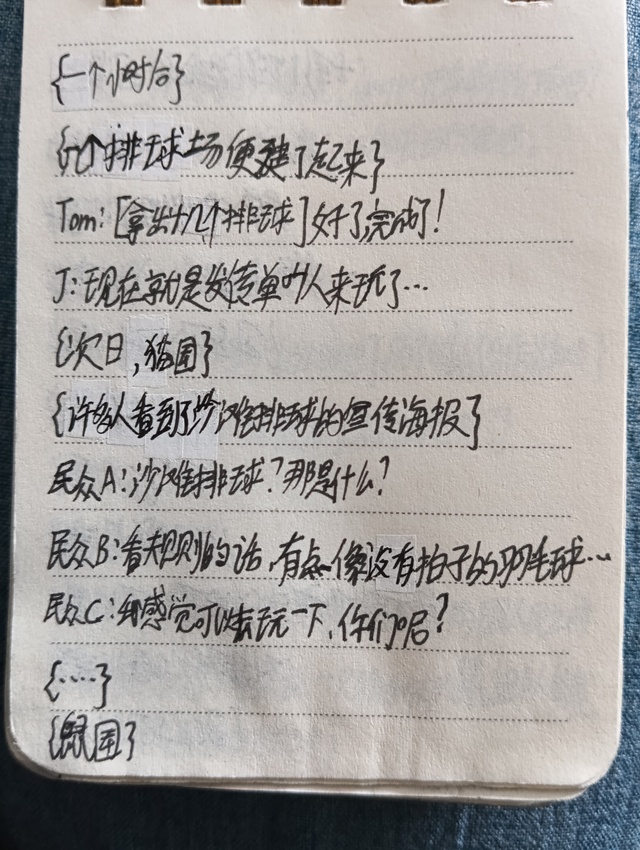 {一个小时后}
{6个排球场便建了起来}
Tom:[拿出十几个排球]好了,完成了!
J:现在就是发传单叫人来玩了…
{次日,猫国}
{许多人看到了沙滩排球的宣传海报}
民众A:沙滩排球?那是什么?
民众B:看规则的话,有点像没有拍子的羽毛球…
民众C:我感觉可以去玩一下,你们呢?
{……}
{鼠国}